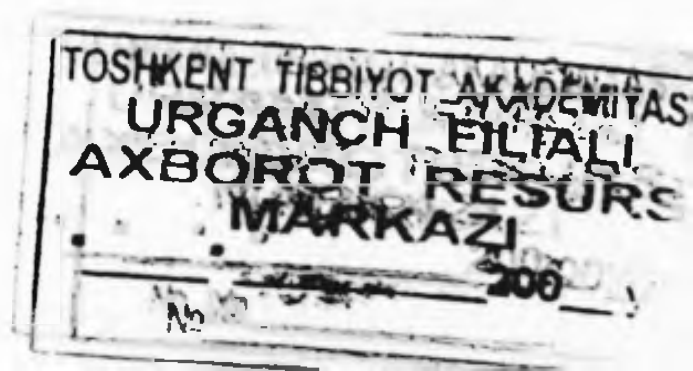 TOSHKENT TIBBIYOT AKADEMIYAS
URGANCH FILIALI
AXBOROT RESURS
MARKAZI
200
№